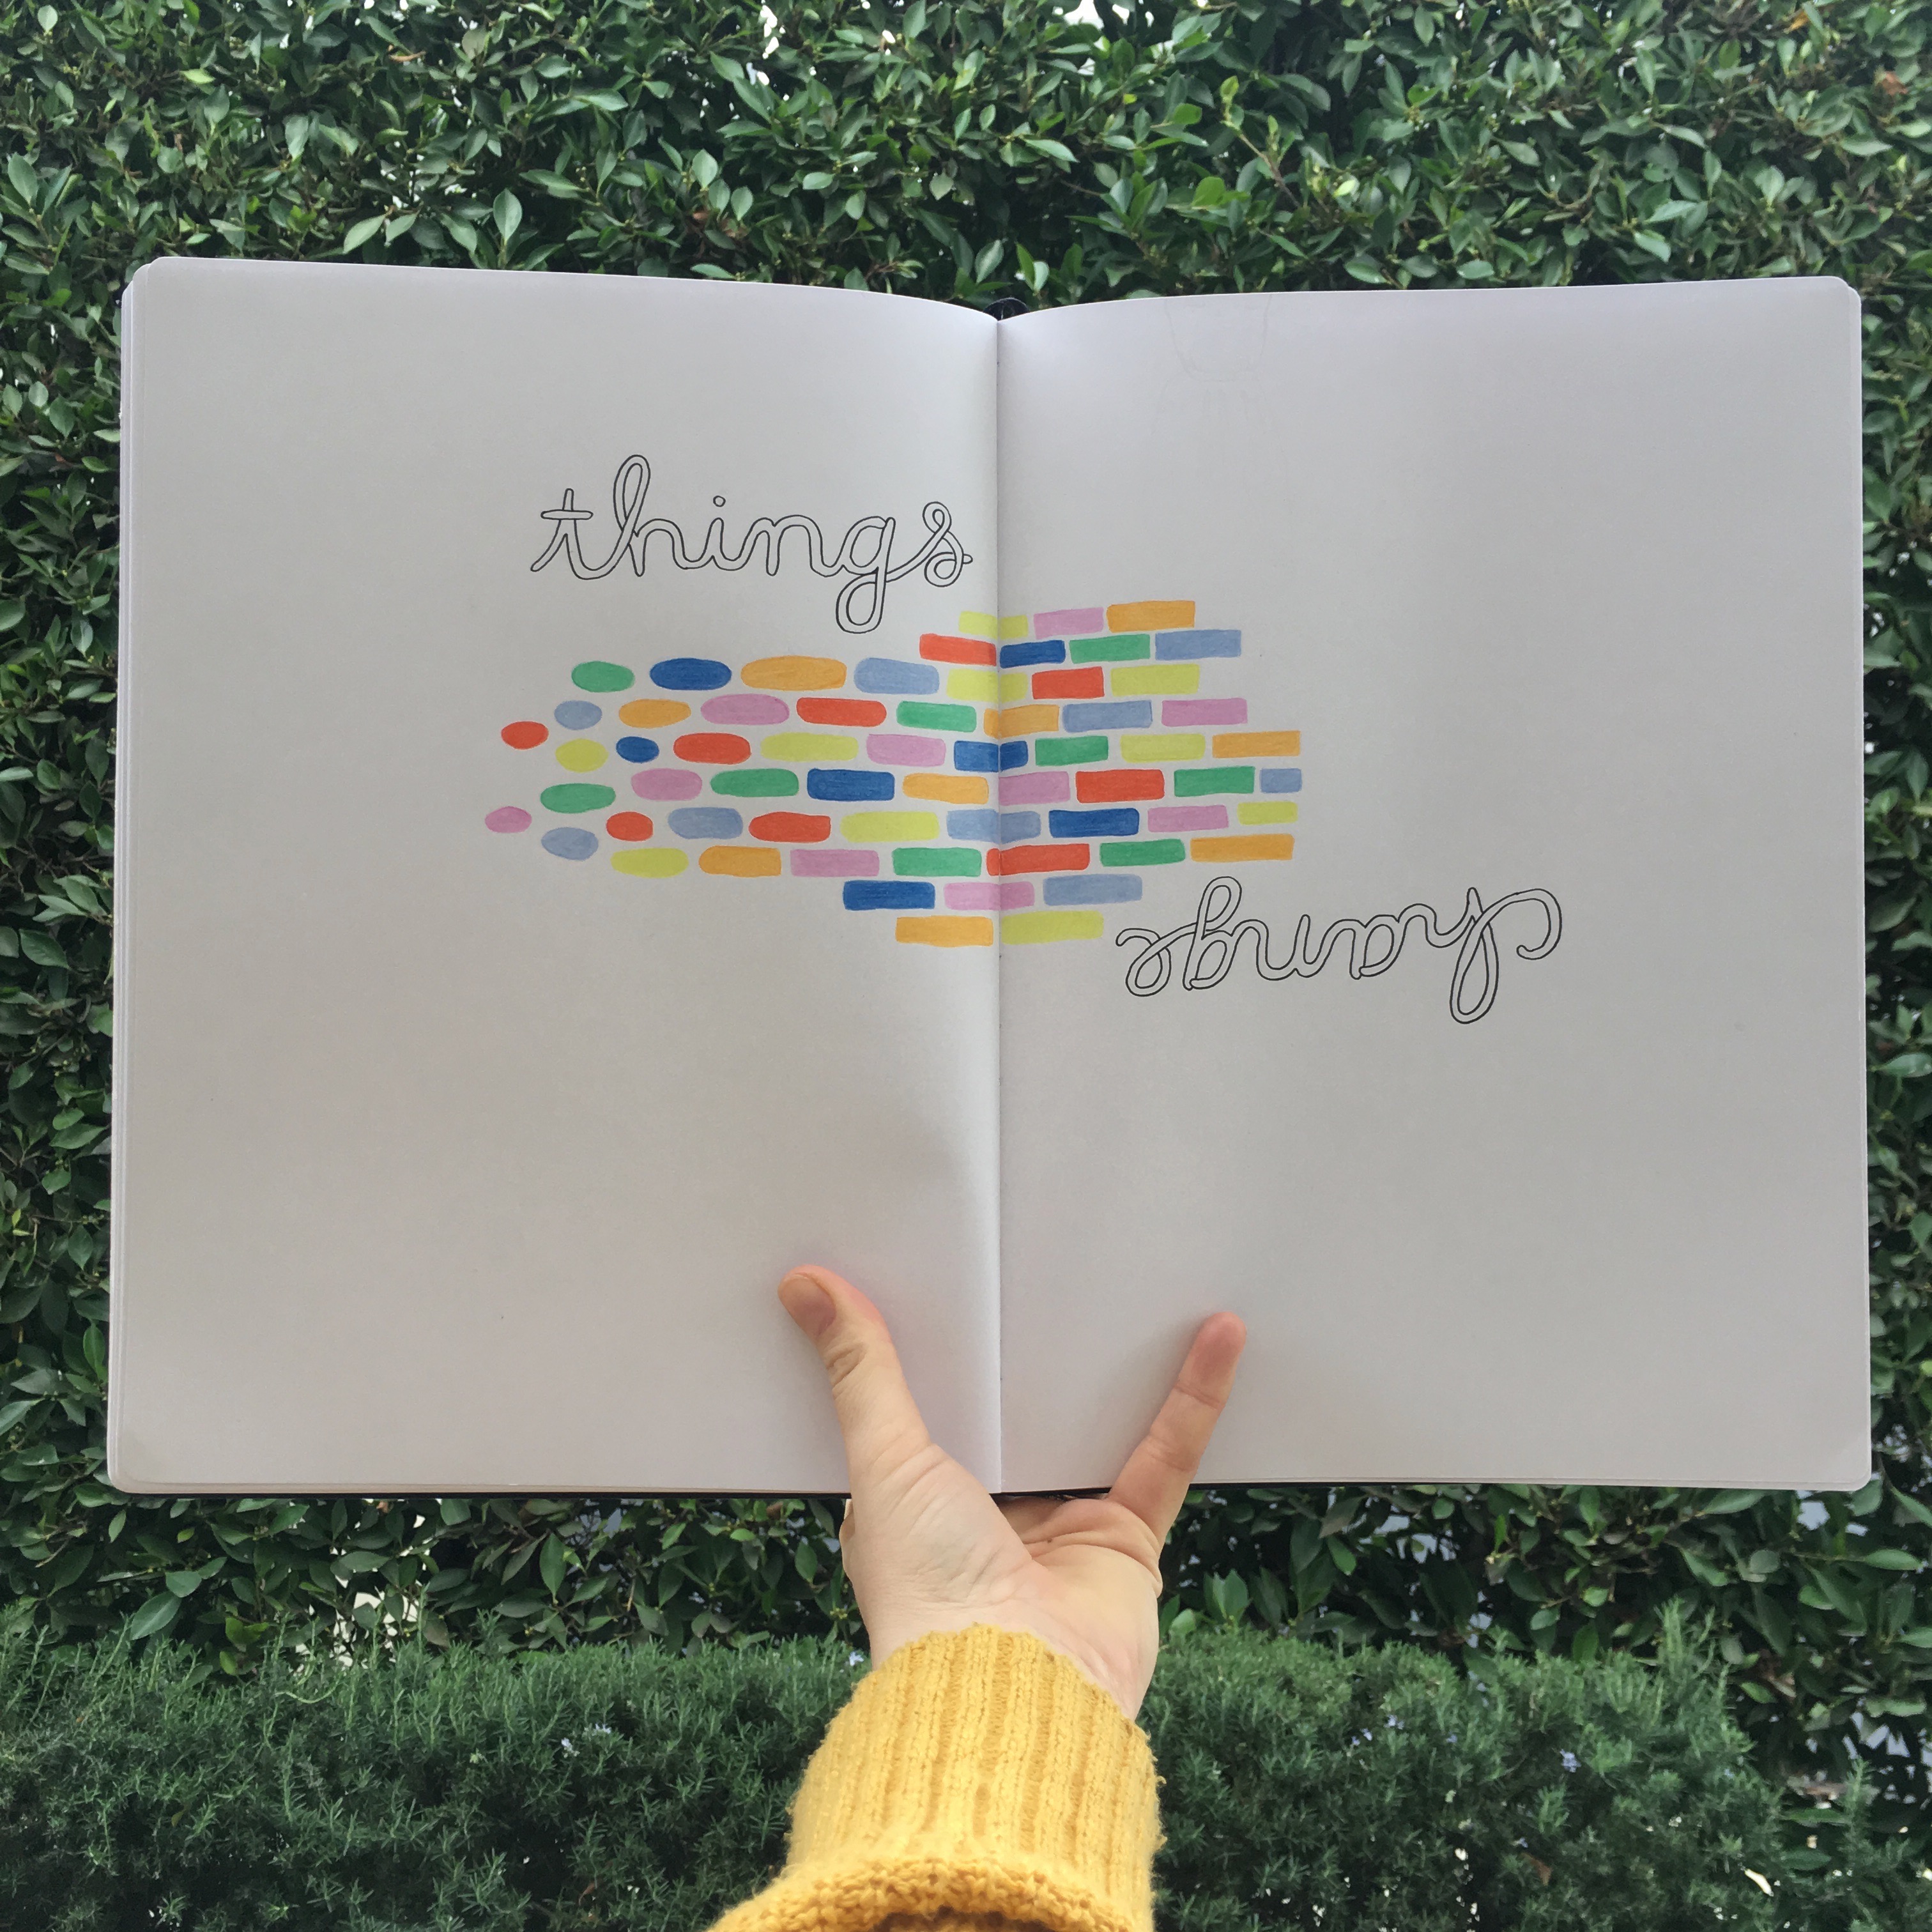 things
change